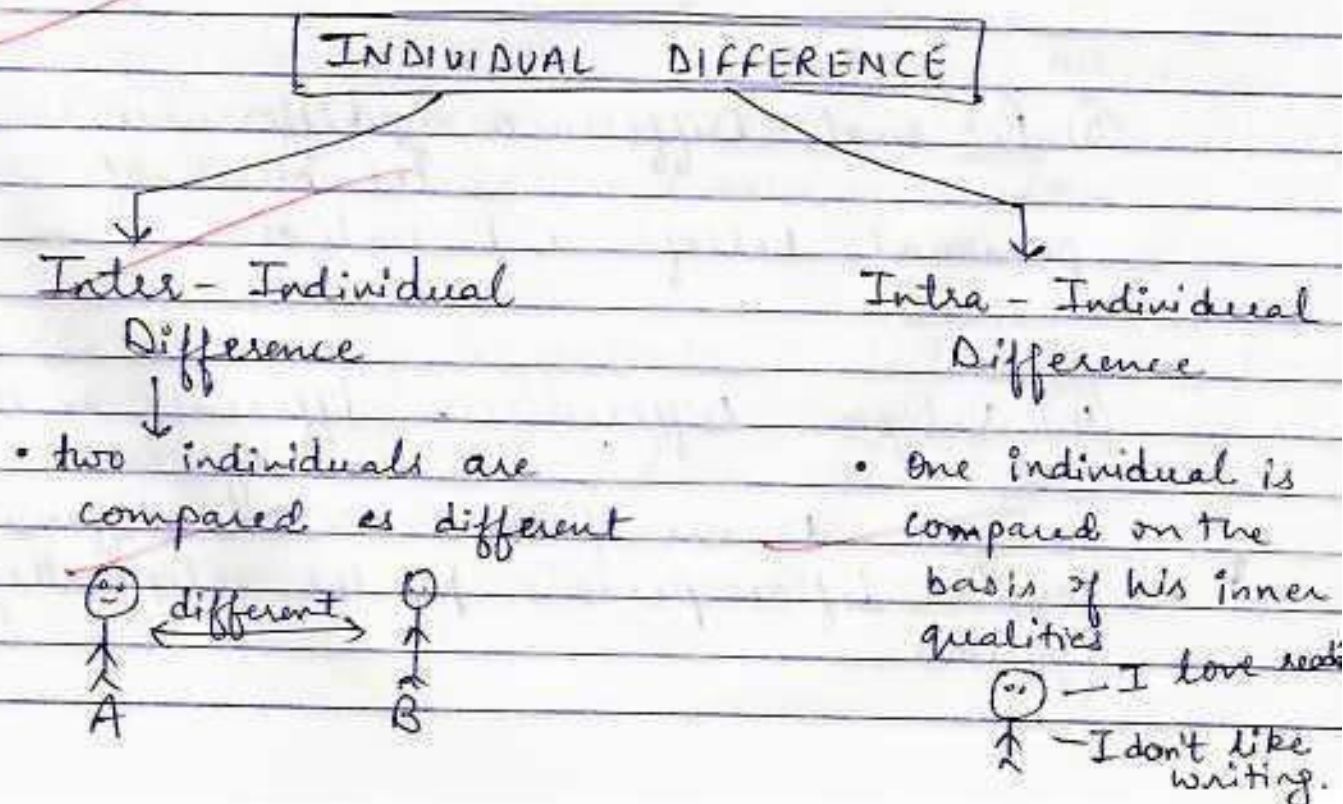 INDIVIDUAL DIFFERENCE
Inter - Individual
Difference
• two individuals are
compared as different
different
A
B
Intra - Individual
Difference
• One individual is
compared on the
basis of his inner
qualities
— I love
— I don't like
writing.